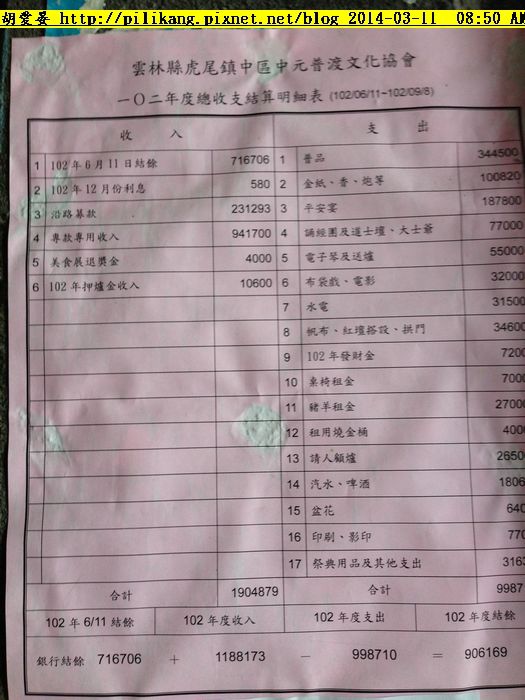 胡愛晏 http://pilikang.pixnet.net/blog 2014-03-11 08:50 AM
雲林縣虎尾鎮中區中元普渡文化協會
一〇二年度總收支結算明細表 (102/06/11~102/09/8)
收 入 支 出
1 102年6月11日結餘 716706 1 普品 344500
2 102年12月份利息 580 2 金紙、香、炮等 100820
3 沿路募款 231293 3 平安宴 187800
4 專款專用收入 941700 4 誦經團及道士壇、大士爺 77000
5 美食展退獎金 4000 5 電子琴及送爐 55000
6 102年押爐金收入 10600 6 布袋戲、電影 32000
7 水電 31500
8 帆布、紅壇搭設、拱門 34600
9 102年發財金 7200
10 桌椅租金 7000
11 豬羊租金 27000
12 租用燒金桶 4000
13 請人顧爐 26500
14 汽水、啤酒 1806
15 盆花 640
16 印刷、影印 770
17 祭典用品及其他支出 3163
合計 1904879 合計 9987
102年6/11結餘 102年度收入 102年度支出 102年度結餘
銀行結餘 716706 + 1188173 - 998710 = 906169